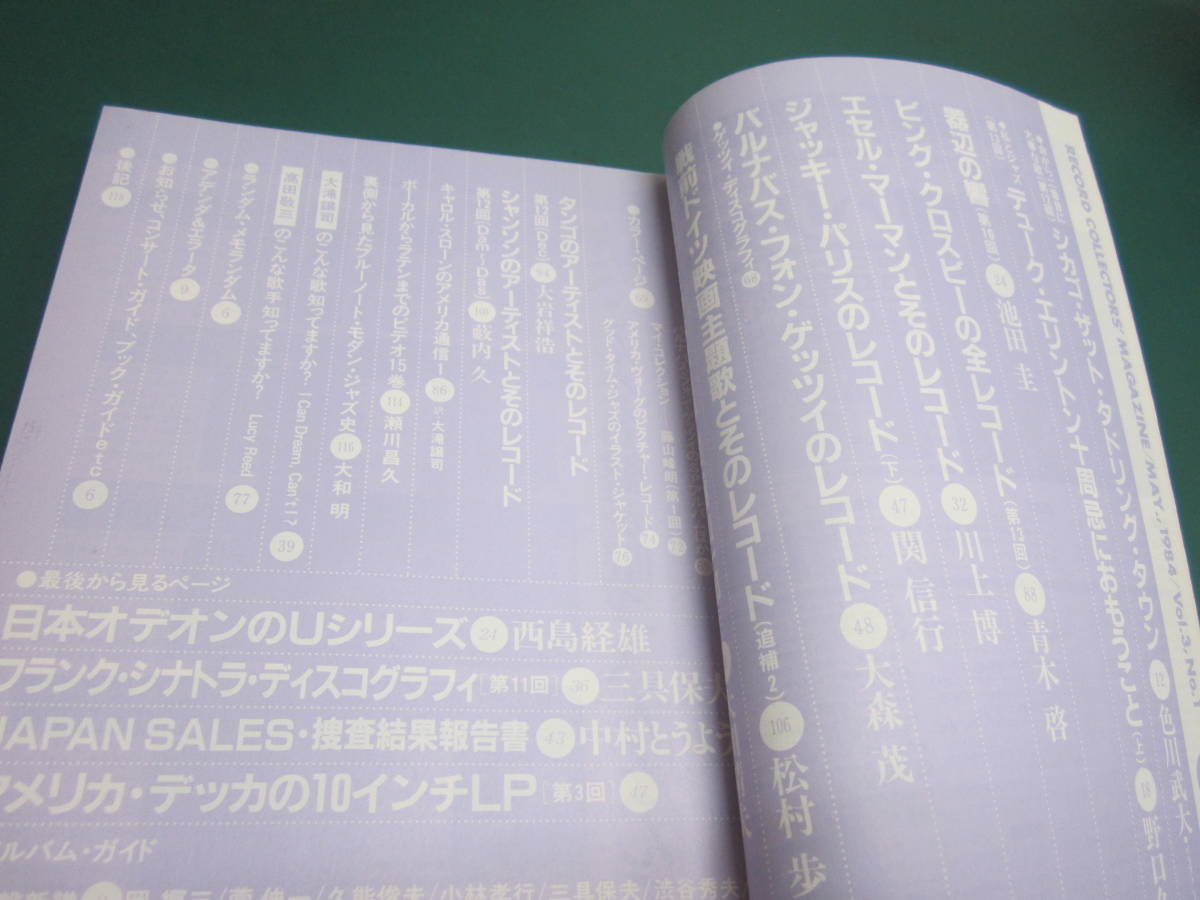 RECORD COLLECTORS' MAGAZINE/MAY., 1984 Vol.3, No.1
シカゴ・ザット・タドリング・タウン 12 色川武大・
デューク・エリントン十周忌におもうこと(上) 18 野口
24 池田 圭
ビング・クロスビーの全レコード(第13回) 88 青木 啓
エセル・マーマンとそのレコード 32 川上 博
ジャッキー・パリスのレコード(下) 47 関 信行
バルナバス・フォン・ゲッツィのレコード 48 大森 茂
●ゲッツィ・ディスコグラフィ
戦前ドイツ映画主題歌とそのレコード(追補2) 106 松村 歩
●カラーページ
マイ・コレクション
アメリカ・ヴォーグのピクチャー・レコード 74
グッド・タイム・ジャズのイラスト・ジャケット 76
タンゴのアーティストとそのレコード
94 大岩祥浩
シャンソンのアーティストとそのレコード
108 藪内 久
キャロル・スローンのアメリカ通信ー 86 訳・大滝譲司
ボーカルからラテンまでのビデオ15巻 114 瀬川昌久
裏側から見たブルーノート・モダン・ジャズ史 116 大和 明
大滝譲司のこんな歌知ってますか? I Can Dream, Can't I? 39
高田敬三のこんな歌手知ってますか? Lucy Reed 77
●ランダム・メモランダム 6
●アデンダ&エラータ 9
●お知らせ、コンサート・ガイド、ブック・ガイドetc 6
●後記 118
●最後から見るページ
日本オデオンのUシリーズ 24 西島経雄
フランク・シナトラ・ディスコグラフィ[第11回] 36 三具保夫
JAPAN SALES・捜査結果報告書 43 中村とうよう
アメリカ・デッカの10インチLP[第3回] 17
ルバム・ガイド
小林孝行/三具保夫/渋谷秀夫